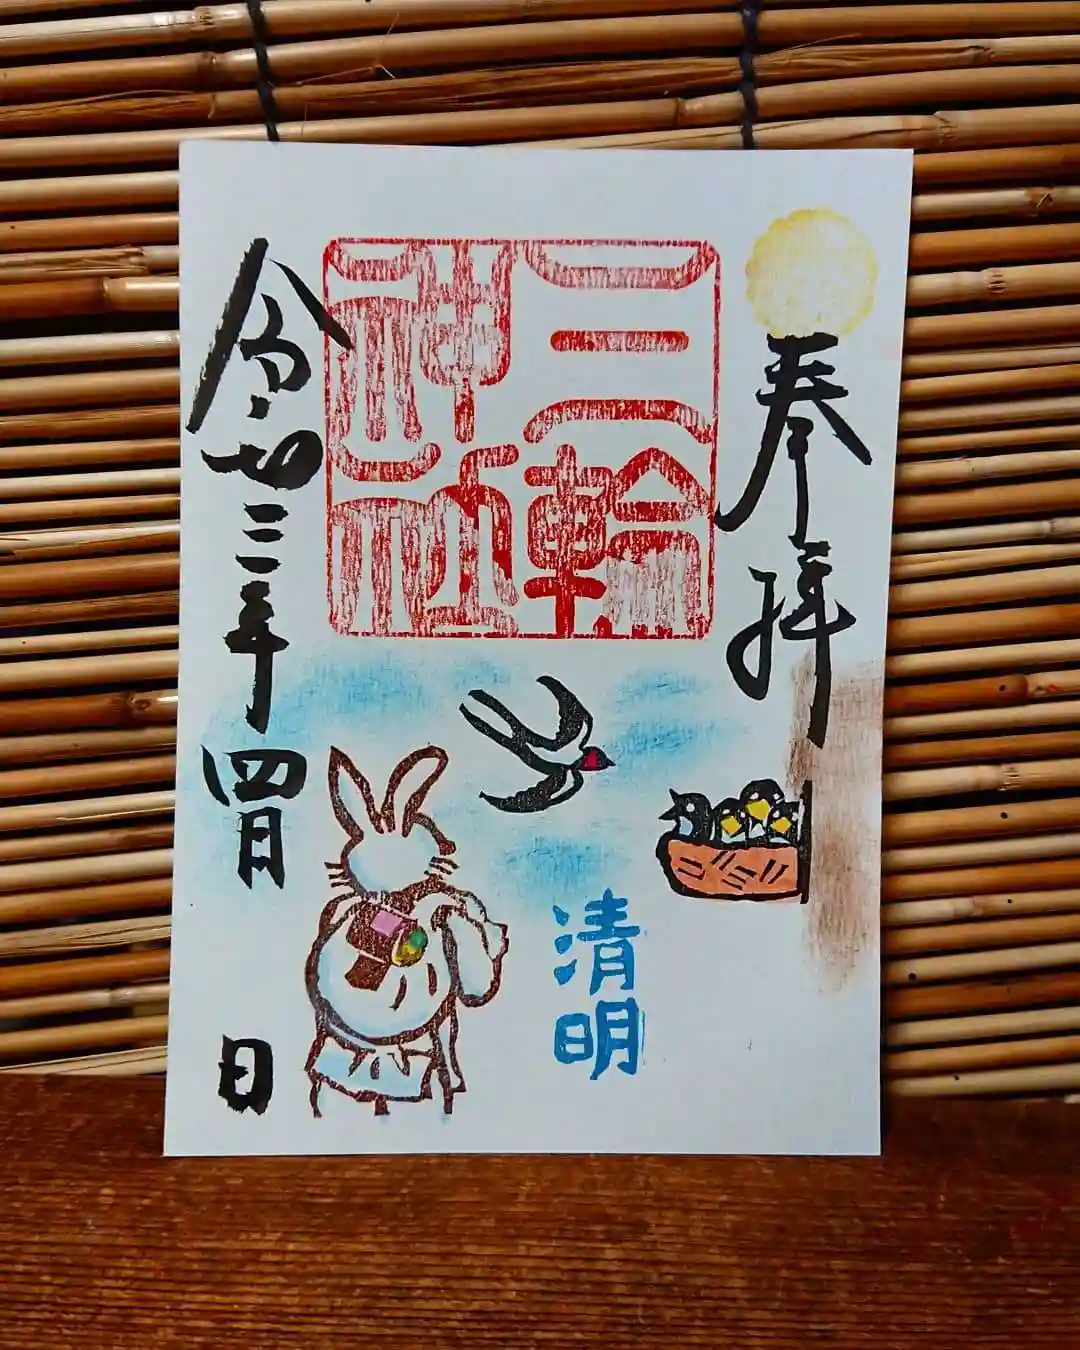 奉拝
三輪
神社
清明
令和三年四月 日